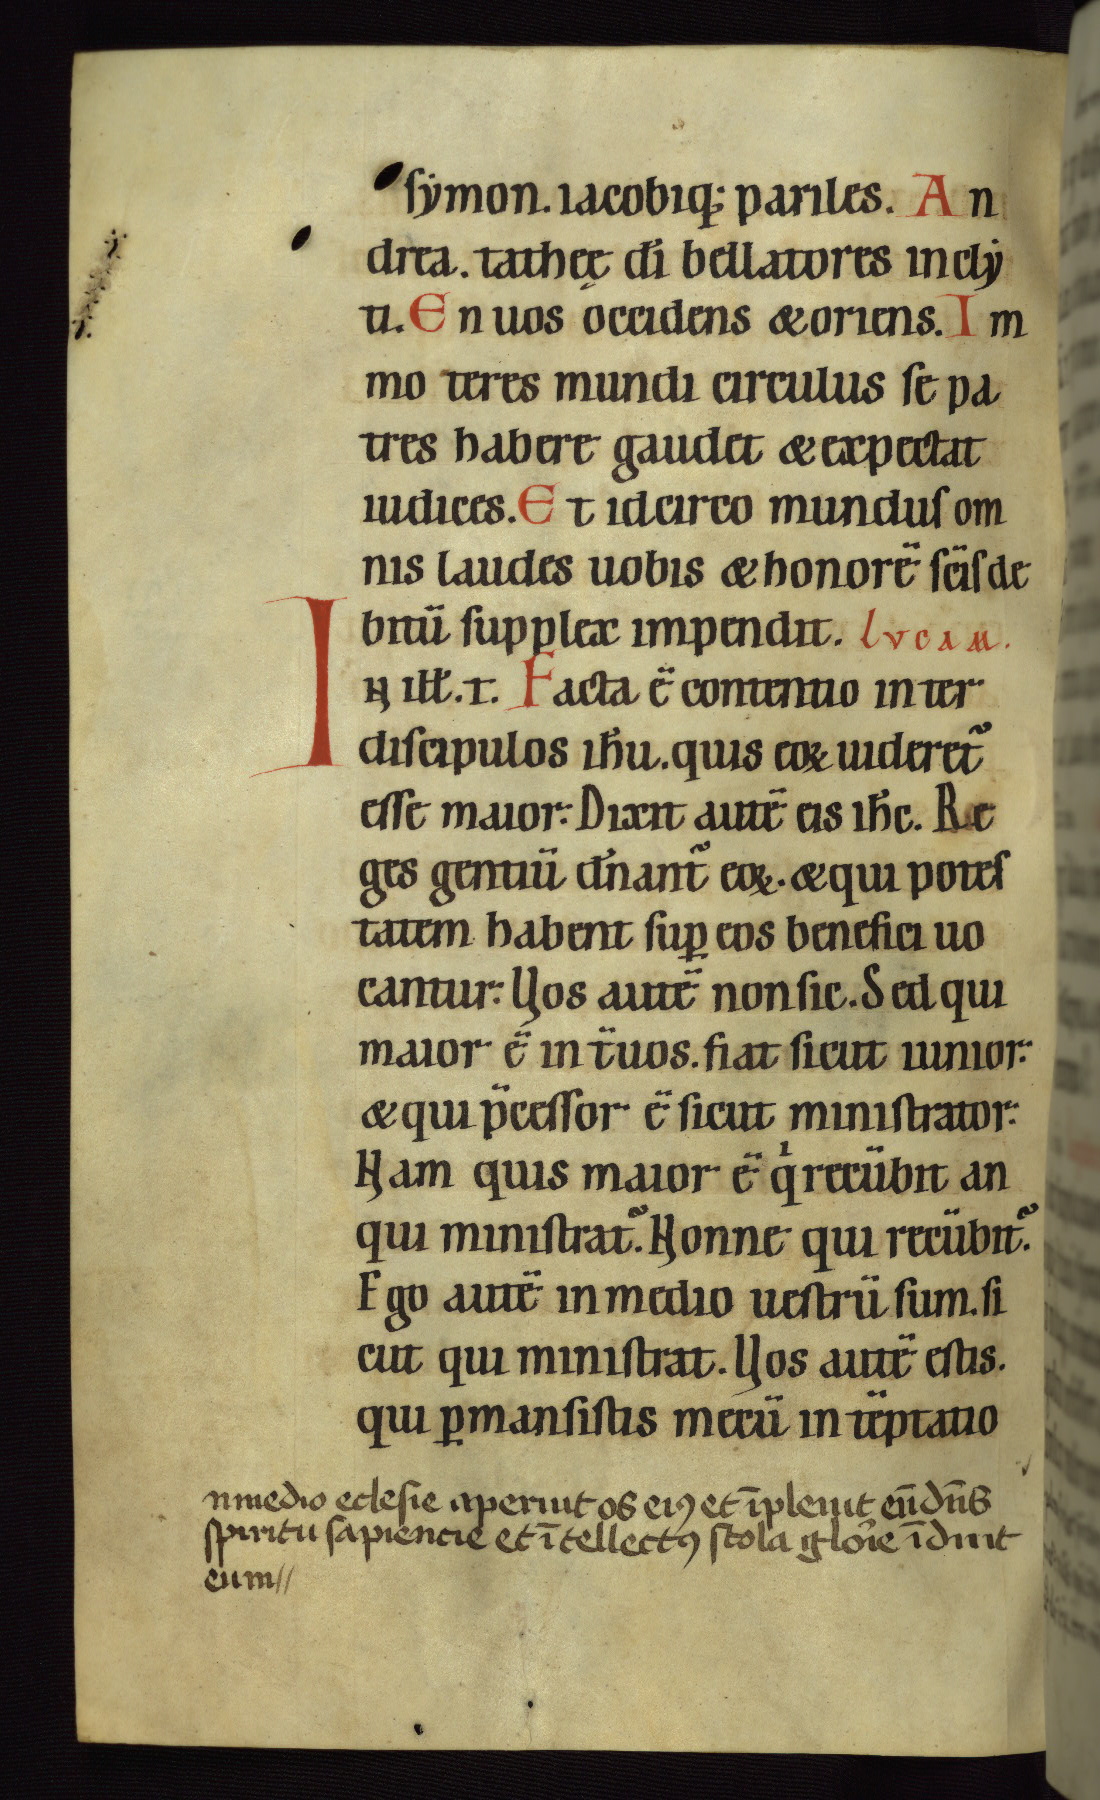 sẏmon. iacobiq; pariles. An
drea. tatheę dī bellatores incly
ti. En uos occidens & oriens. Im
mo teres mundi circulus se pa
tres habere gaudet & expectat
iudices. Et idcirco mundus om
nis laudes uobis & honorē sc̄is de
bitū supplex impendit. Lvcam.
In ill̄. t. Facta ē contentio inter
discipulos ih̄u. quis eoꝝ uideret᷑
esse maior: Dixit autē eis ih̄c. Re
ges gentiū dn̄ant᷑ eoꝝ. & qui potes
tatem habent suꝑ eos benefici uo
cantur: Uos autē non sic. Sed qui
maior ē in t̄ uos. fiat sicut iunior:
& qui p̄cessor ē sicut ministrator:
Nam quis maior ē qͥ recūbit an
qui ministrat᷑. Nonne qui recūbit᷑.
Ego autē in medio uestrū sum. si
cut qui ministrat. Uos autē estis.
qui ꝑmansistis mecū in tēptatio
n medio eclesie aperuit os eiꝰ et īpleuit eūdn̄s
spiritu sapiencie et ītellectꝰ stola glōie īduit
eum//